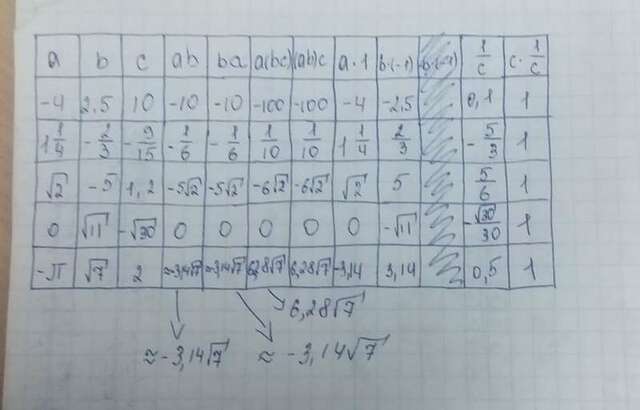 a b c ab ba a(bc) (ab)c a·1 b·(-1) 1/c c·1/c
-4 2,5 10 -10 -10 -100 -100 -4 -2,5 0,1 1
1 1/4 -2/3 -9/15 -1/6 -1/6 1/10 1/10 1 1/4 2/3 -5/3 1
√2 -5 1,2 -5√2 -5√2 -6√2 -6√2 √2 5 5/6 1
0 √11 -√30 0 0 0 0 0 -√11 -√30/30 1
-π √7 2 ≈-3,14√7 ≈-3,14√7 6,28√7 6,28√7 -3,14 3,14 0,5 1
6,28√7
≈-3,14√7 ≈ -3,14√7